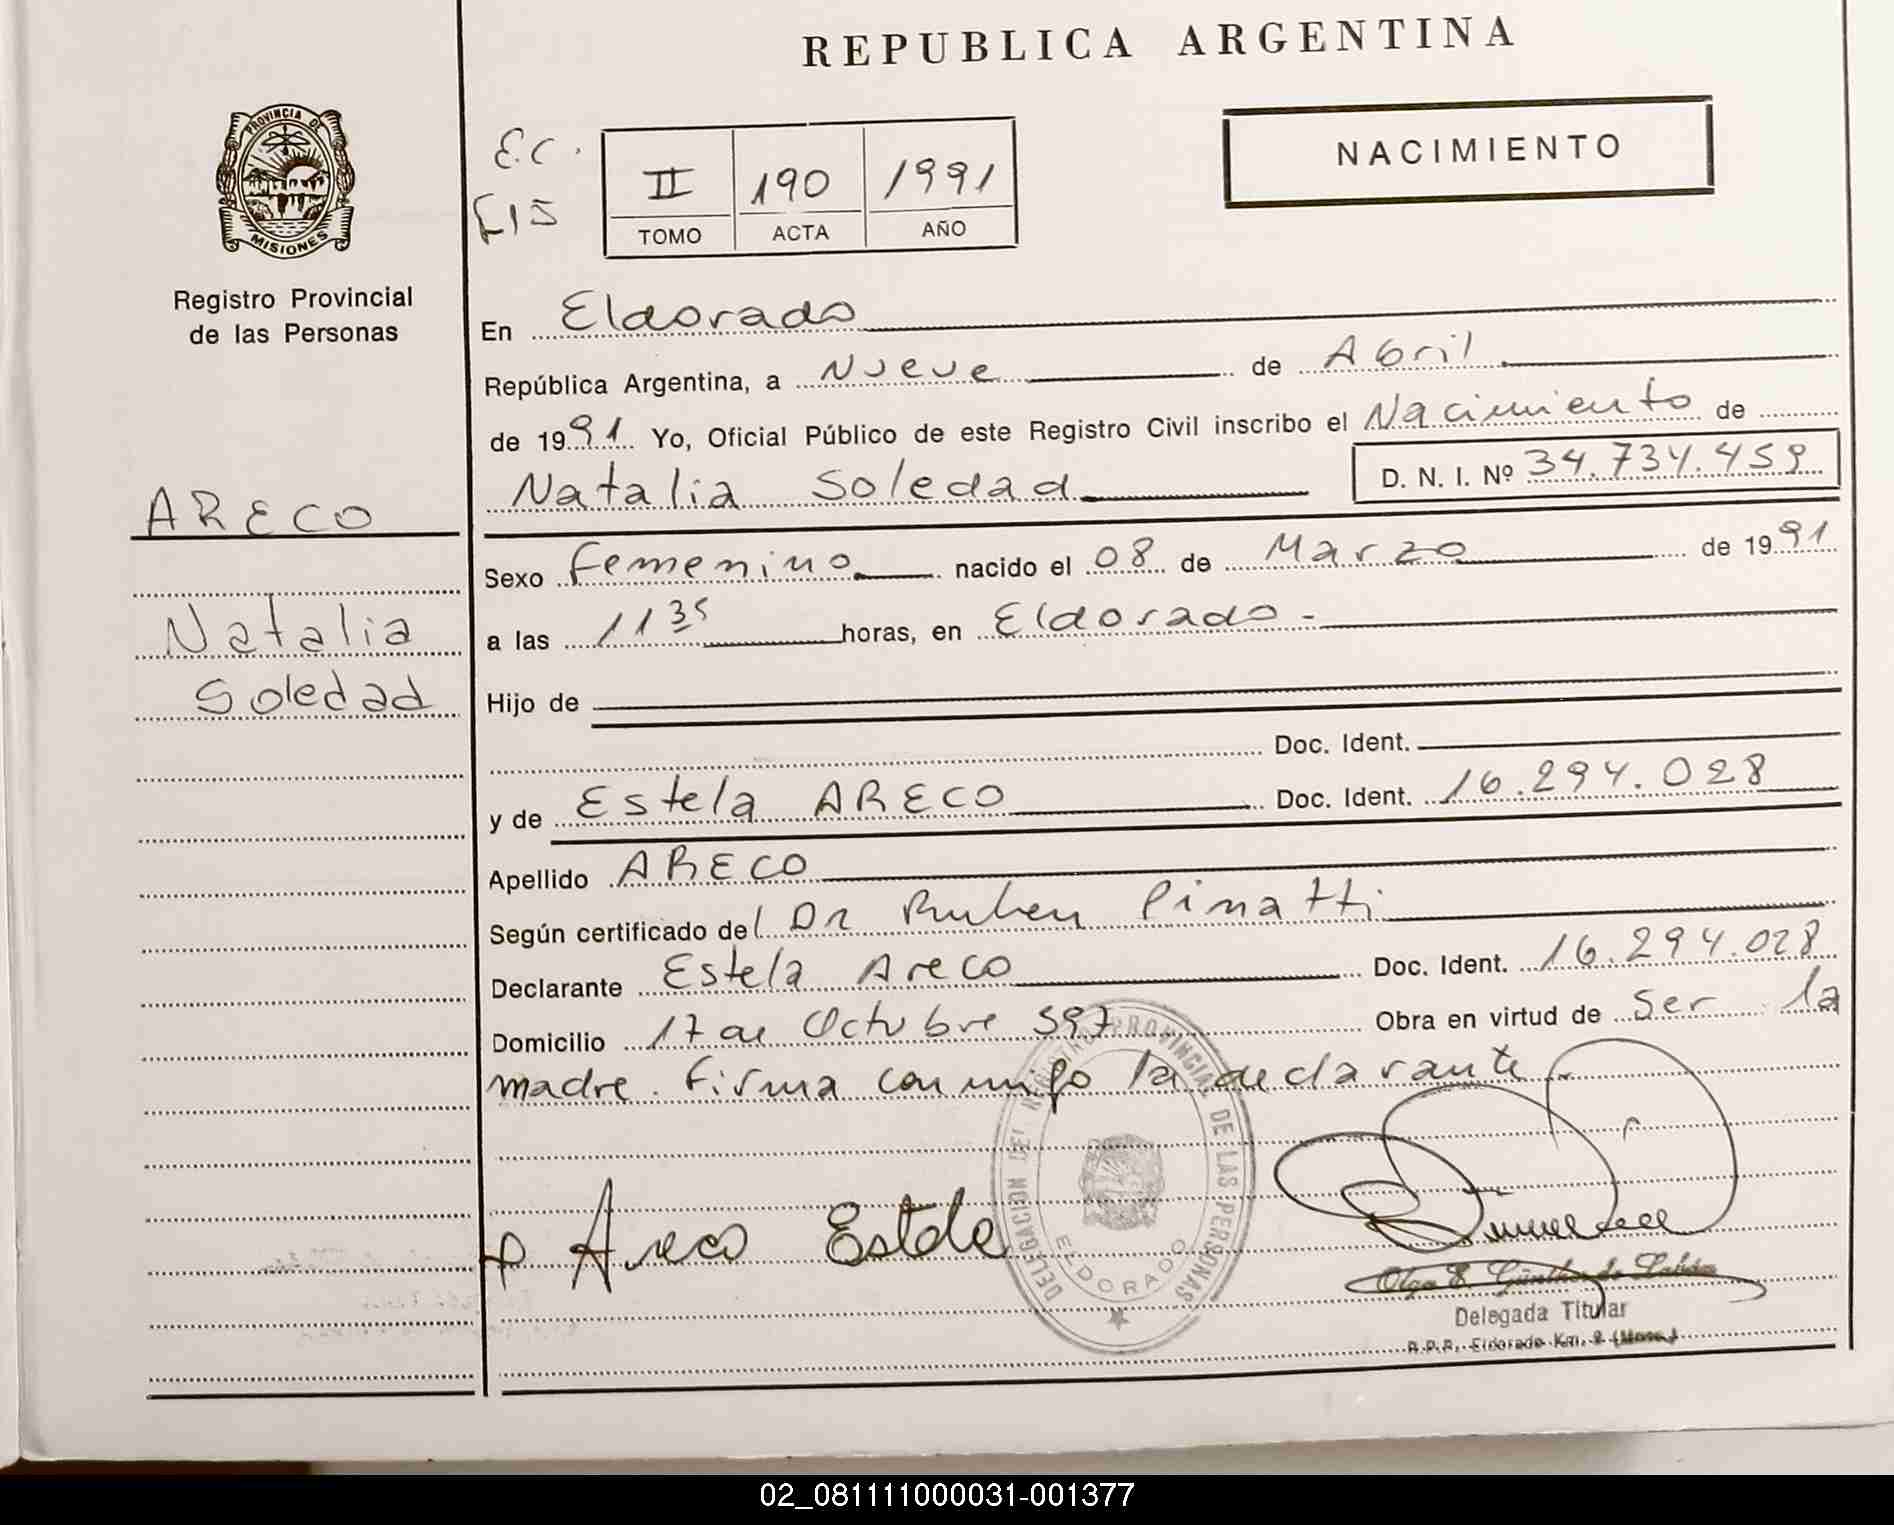 REPUBLICA ARGENTINA
PROVINCIA DE
MISIONES
Registro Provincial
de las Personas
E.C.
II 190 1991
TOMO ACTA AÑO
NACIMIENTO
ARECO
Natalia
Soledad
En Eldorado
República Argentina, a Nueve de Abril
de 1991 Yo, Oficial Público de este Registro Civil inscribo el Nacimiento de
Natalia Soledad D. N. I. Nº 34.734.459
Sexo Femenino nacido el 08 de Marzo de 1991
a las 11 35 horas, en Eldorado -
Hijo de
Doc. Ident.
y de Estela ARECO Doc. Ident. 16.294.028
Apellido ARECO
Según certificado del DR Ruben Pinatti
Declarante Estela Areco Doc. Ident. 16.294.028
Domicilio 17 de Octubre 597 Obra en virtud de Ser la
madre. Firma conmigo la declarante.
Areco Estela
DELEGACION DEL REGISTRO PROVINCIAL DE LAS PERSONAS
ELDORADO
Delegada Titular
R.P.P. Eldorado Km. 9 (Mnes.)
02_081111000031-001377